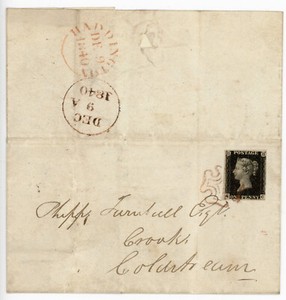 HADDINGTON
DE 9
1840
DEC
9 A
1840
POSTAGE
ONE PENNY
Turnbull Esqr.
Crooks
Coldstream